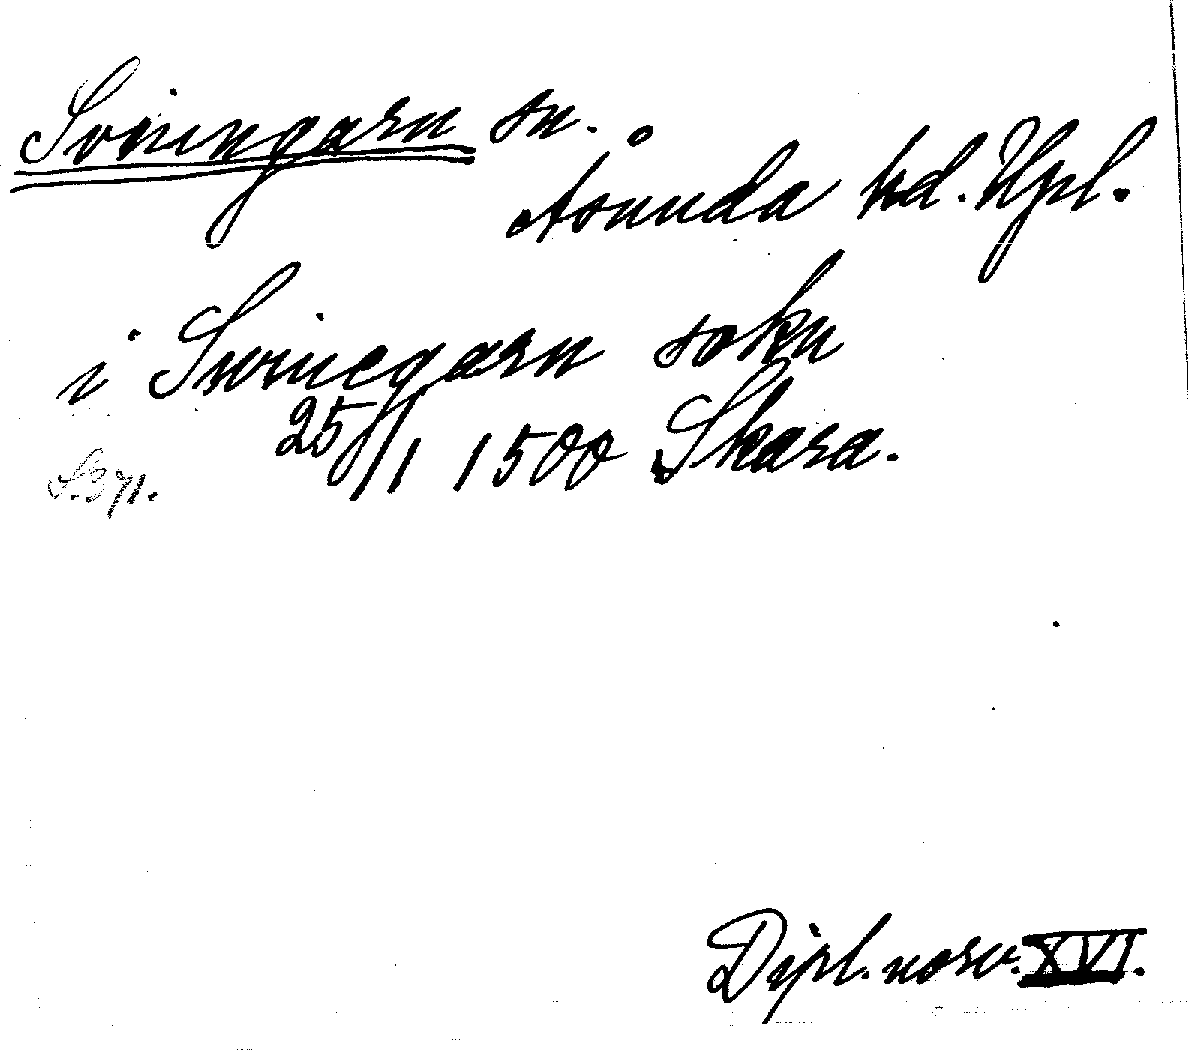 Svinngarn sn.
Åsunda hd. Uppl.
i Swinegarn sokn
25/1 1500 Skara.
S. 371.
Dipl. norv. XVI.